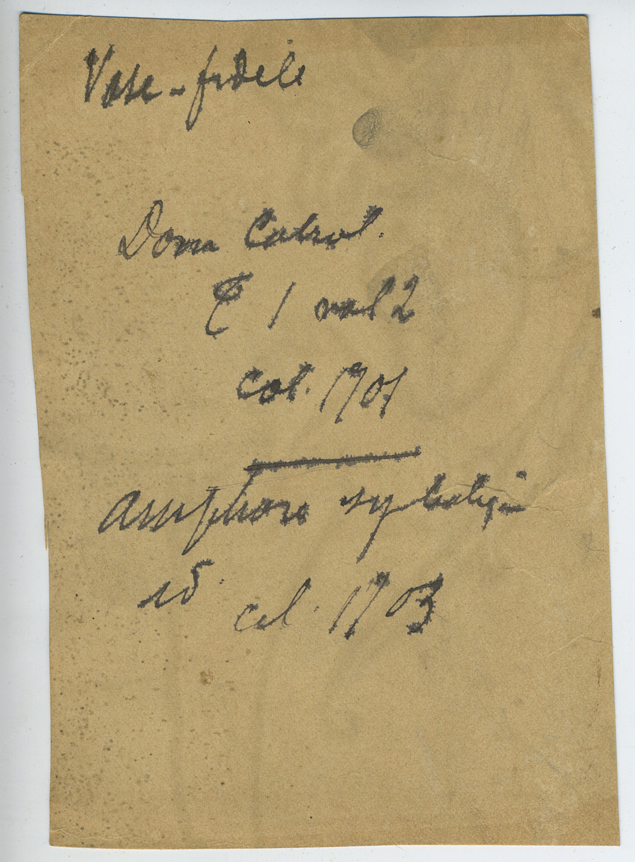 Vase - fidèle
Dom Cabrol.
T 1 vol 2
col. 1701
amphore symbolique
id.
col. 1703